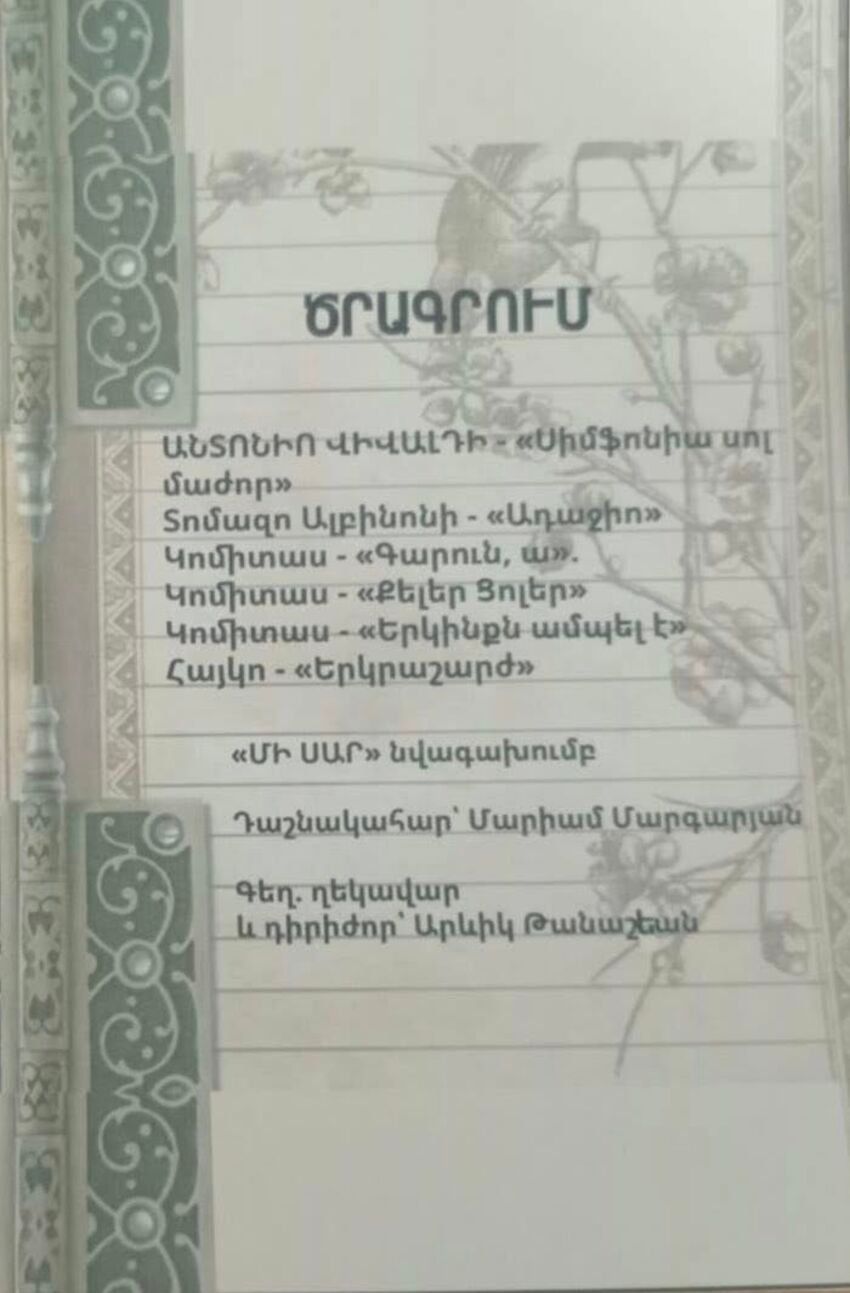 ԾՐԱԳՐՈՒՄ
ԱՆՏՈՆԻՈ ՎԻՎԱԼԴԻ - «Սիմֆոնիա սոլ
մաժոր»
Տոմազո Ալբինոնի - «Ադաջիո»
Կոմիտաս - «Գարուն, ա».
Կոմիտաս - «Քելեր Ցոլեր»
Կոմիտաս - «Երկինքն ամպել է»
Հայկո - «Երկրաշարժ»
«ՄԻ ՍԱՐ» նվագախումբ
Դաշնակահար՝ Մարիամ Մարգարյան
Գեղ. ղեկավար
և դիրիժոր՝ Արևիկ Թանաշեան